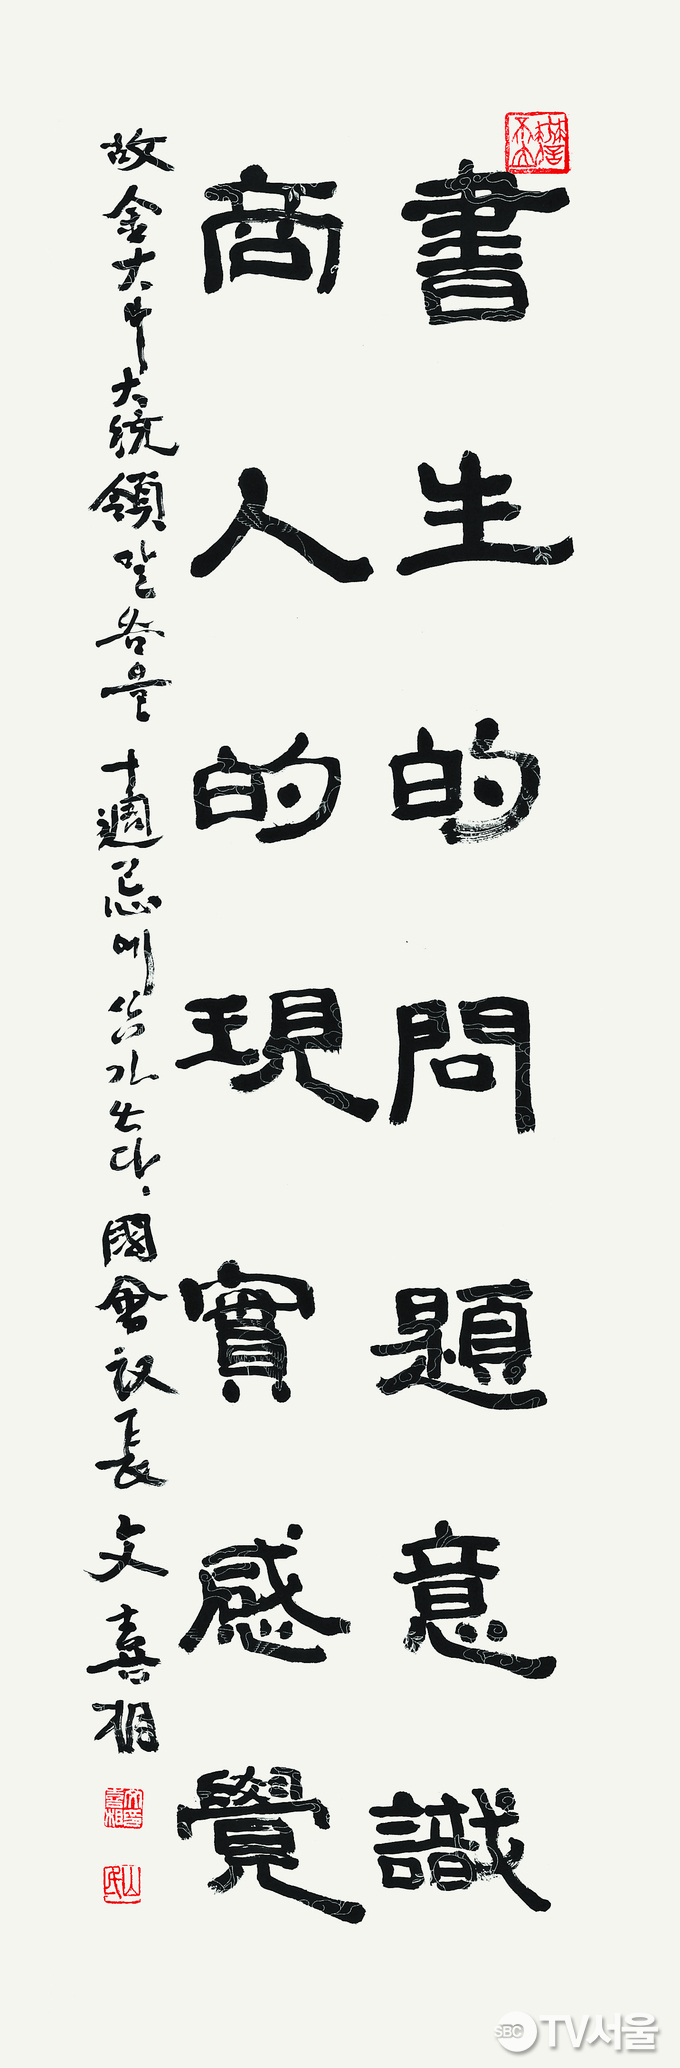 書生的問題意識
商人的現實感覺
故金大中大統領 말씀을 十週忌에 삼가 쓰다. 國會议長 文喜相
SBC TV서울